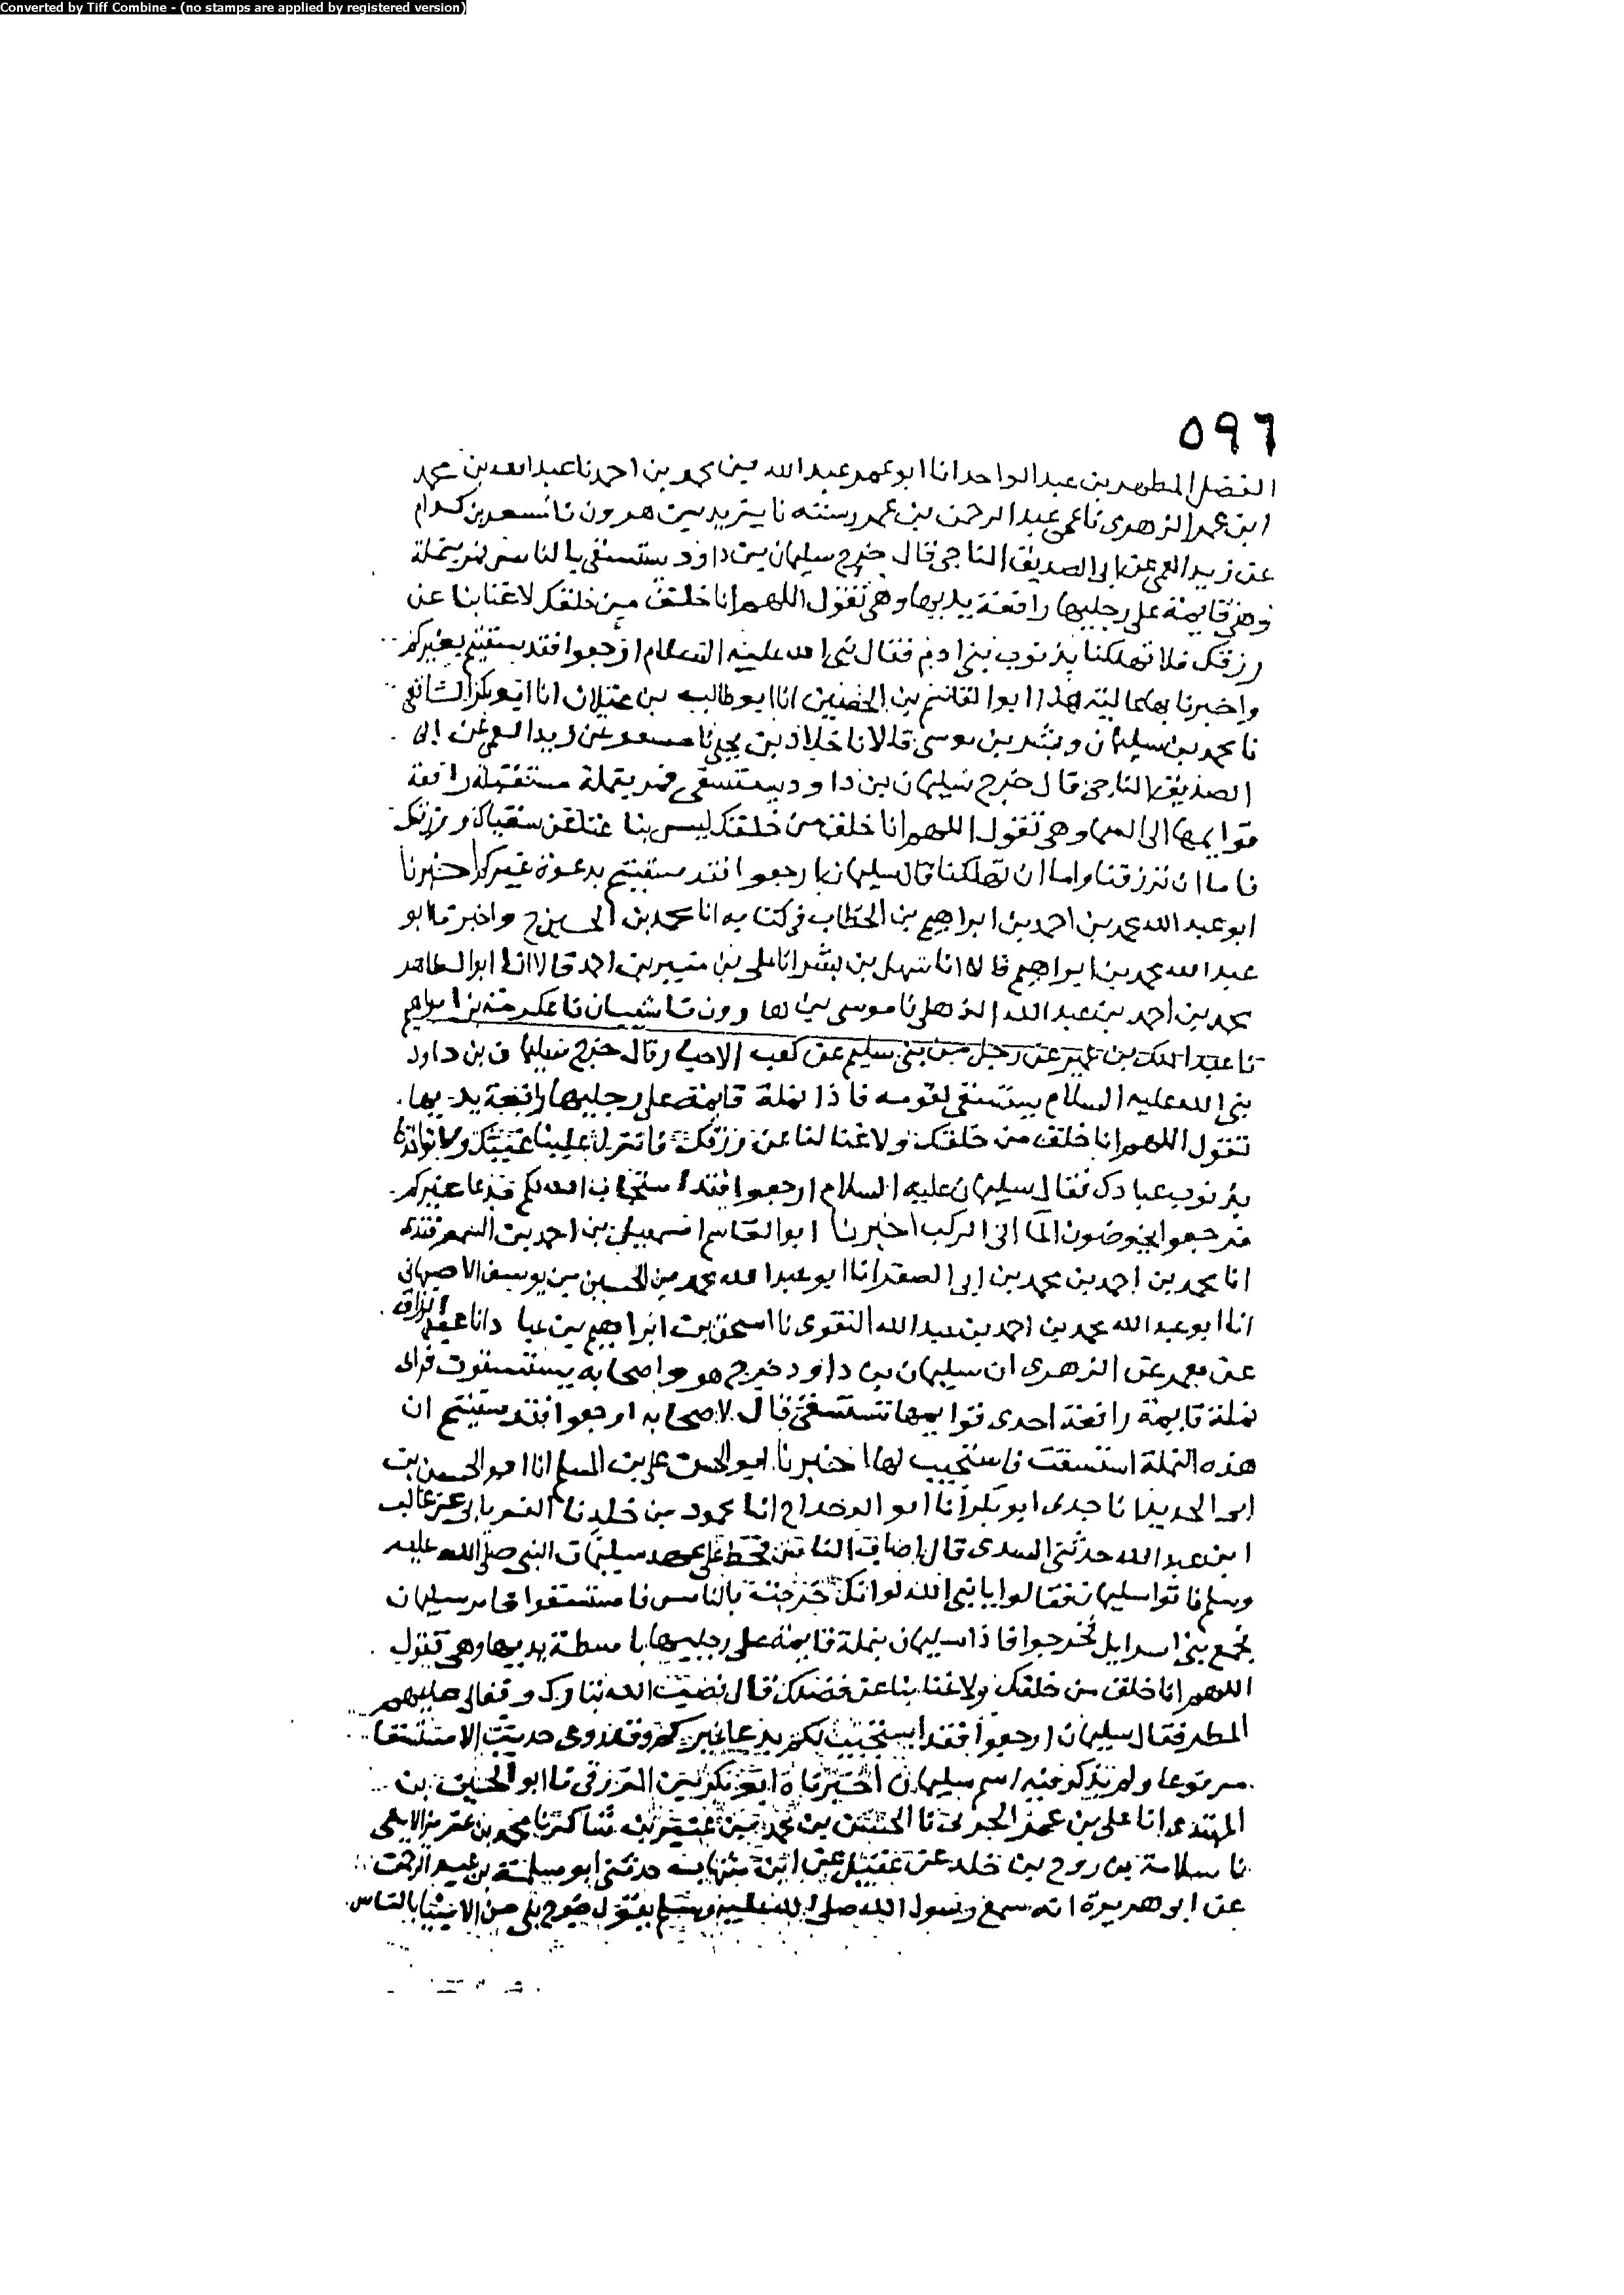 Converted by Tiff Combine - (no stamps are applied by registered version)
٥٩٦
الفضل المطهر بن عبد الواحد انا ابو عمر عبد الله بن محمد بن احمد نا عبد الله بن محمد
ابن عمر الزهرى نا عمى عبد الرحمن بن عمر رسته نا يزيد بن هرون نا مسعر بن كدام
عن زيد العمى عن ابى الصديق الناجى قال خرج سليمان بن داود يستسقى بالناس فمر بنملة
وهى قايمة على رجليها رافعة يديها وهى تقول اللهم انا خلق من خلقك لا غنا بنا عن
رزقك فلا تهلكنا بذنوب بنى ادم فقال نبى الله عليه السلام ارجعوا فقد سقيتم بغيركم
واخبرنا بها عاليته هذا ابو القاسم بن الحصين انا ابو طالب بن غيلان انا ابو بكر الشافعى
نا محمد بن سليمان وبشر بن موسى قالا نا خلاد بن يحيى نا مسعر عن زيد العمى عن ابى
الصديق الناجى قال خرج سليمان بن داود يستسقى فمر بنملة مستلقية رافعة
قوايمها الى السما وهى تقول اللهم انا خلق من خلقك ليس بنا غنا عن سقياك ورزقك
فاما ان ترزقنا واما ان تهلكنا قال سليمان ارجعوا فقد سقيتم بدعوة غيركم اخبرنا
ابو عبد الله محمد بن احمد بن ابراهيم بن الحطاب فى كتابه انا محمد بن الحسين ح واخبرنا ابو
عبد الله محمد بن ابراهيم قالا انا سهل بن بشر انا على بن منير بن احمد قالا انا ابو الطاهر
محمد بن احمد بن عبد الله الذهلى نا موسى بن هارون نا شيبان نا عكرمة بن ابراهيم
نا عبد الملك بن عمير عن رجل من بنى سليم عن كعب الاحبار قال خرج سليمان بن داود
نبى الله عليه السلام يستسقى لقومه فاذا نملة قايمة على رجليها رافعة يديها
تقول اللهم انا خلق من خلقك ولا غنا لنا عن رزقك فانزل علينا غيثك ولا تواخذنا
بذنوب عبادك فقال سليمان عليه السلام ارجعوا فقد استجاب الله لكم بدعا غيركم
فرجعوا يخوضون الما الى الركب اخبرنا ابو القاسم اسمعيل بن احمد بن السمرقندى
انا محمد بن احمد بن محمد بن ابى الصقر انا ابو عبد الله محمد بن الحسين بن يوسف الاصبهانى
انا ابو عبد الله محمد بن احمد بن عبد الله النقوى نا اسحق بن ابراهيم بن عباد انا عبد الرزاق
عن معمر عن الزهرى ان سليمان بن داود خرج هو واصحابه يستسقون فراى
نملة قايمة رافعة احدى قوايمها تستسقى فقال لاصحابه ارجعوا فقد سقيتم ان
هذه النملة استسقت فاستجيب لها اخبرنا ابو الحسن على بن المسلم انا ابو الحسن بن
ابى الحديد انا جدى ابو بكر انا ابو الدحداح انا محمود بن خلد نا الفريابى عن غالب
ابن عبد الله حدثنى السدى قال اصاب الناس قحط على عهد سليمان النبى صلى الله عليه
وسلم فاتوا سليمان فقالوا يا نبى الله لو انك خرجت بالناس فاستسقوا فامر سليمان
بجمع بنى اسرايل فخرجوا فاذا سليمان بنملة قايمة على رجليها باسطة يديها وهى تقول
اللهم انا خلق من خلقك ولا غنا بنا عن فضلك قال فصب الله تبارك وتعالى عليهم
المطر فقال سليمان ارجعوا فقد استجيب لكم بدعا غيركم وقد روى حديث الاستسقا
مرفوعا ولم يذكر فيه اسم سليمان اخبرناه ابو بكر بن المزرفى نا ابو الحسين بن
المهتدى انا على بن عمر الحربى نا الحسن بن محمد بن عنبر بن شاكر نا محمد بن عزيز الايلى
نا سلامة بن روح بن خلد عن عقيل عن ابن شهاب حدثنى ابو سلمة بن عبد الرحمن
عن ابو هريرة انه سمع رسول الله صلى الله عليه وسلم يقول خرج نبى من الانبيا بالناس